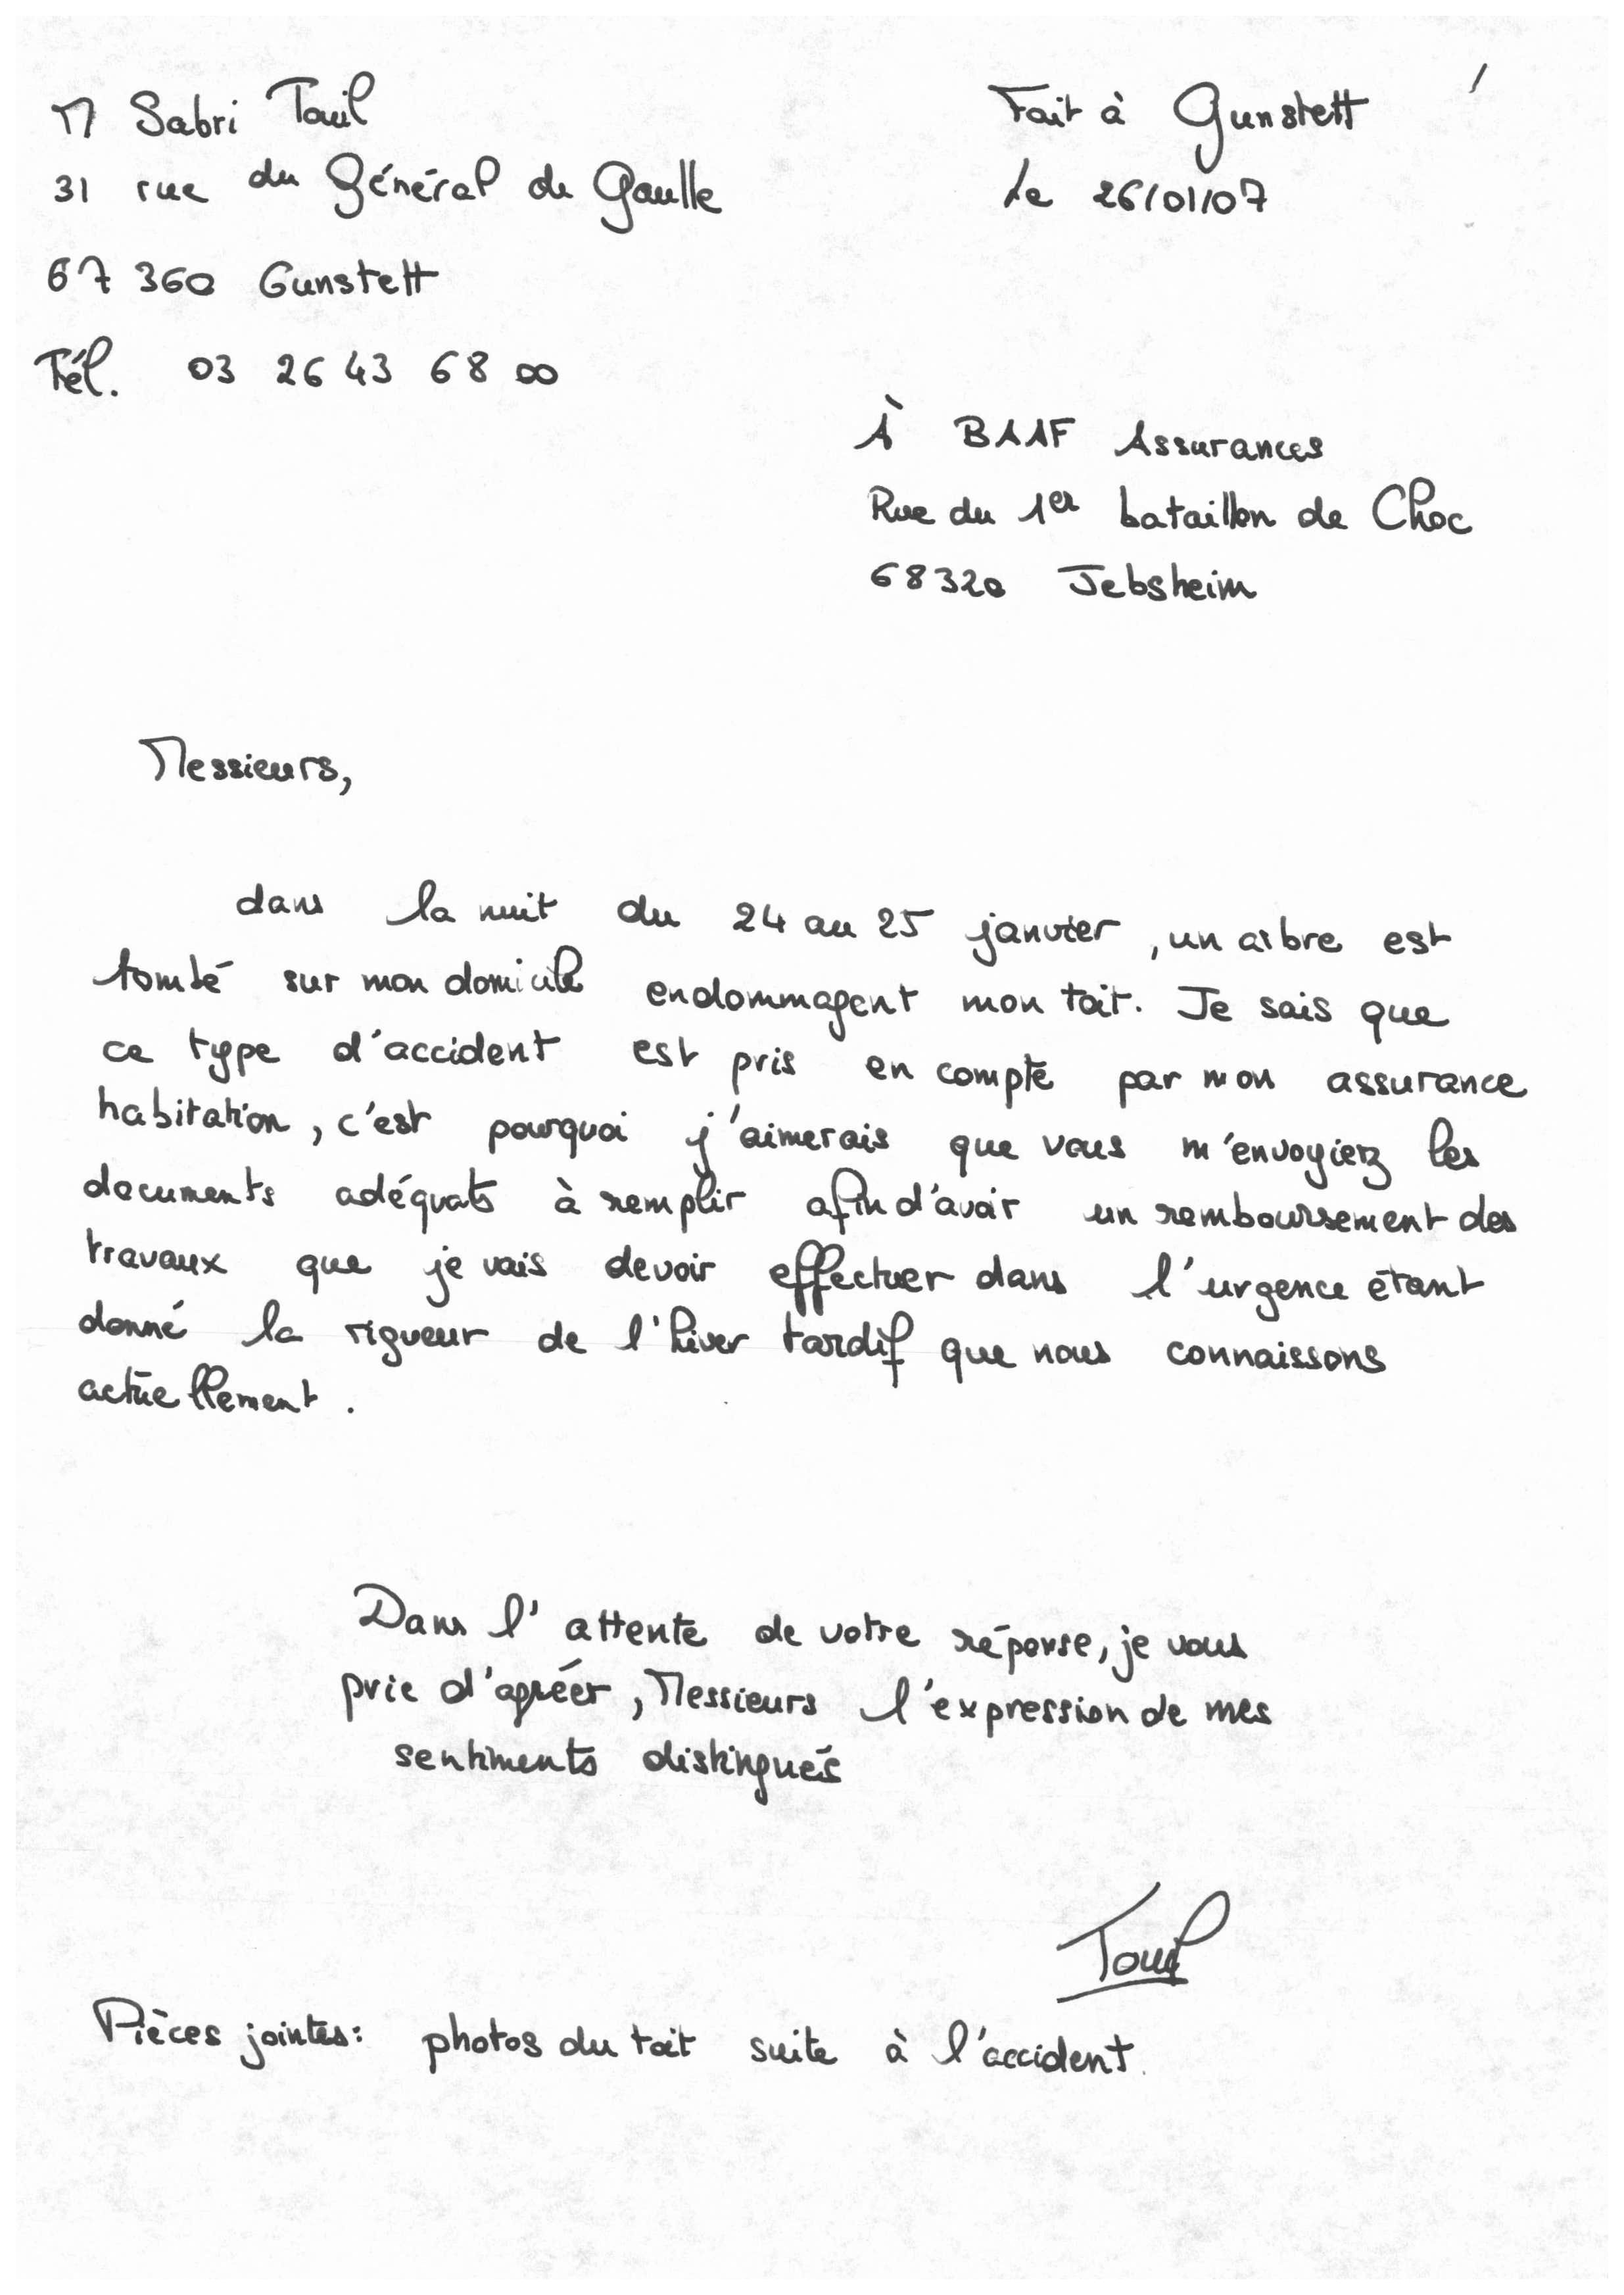 M Sabri Tail
31 rue du Général de Gaulle
67 360 Gunstett
Tél. 03 26 43 68 00
Fait à Gunstett
Le 26/01/07
À BAAF Assurances
Rue du 1er bataillon de Choc
68320 Jebsheim
Messieurs,
dans la nuit du 24 au 25 janvier, un arbre est
tombé sur mon domicile endommagent mon toit. Je sais que
ce type d'accident est pris en compte par mon assurance
habitation, c'est pourquoi j'aimerais que vous m'envoyiez les
documents adéquats à remplir afin d'avoir un remboursement des
travaux que je vais devoir effectuer dans l'urgence étant
donné la rigueur de l'hiver tardif que nous connaissons
actuellement.
Dans l'attente de votre réponse, je vous
prie d'agréer, Messieurs l'expression de mes
sentiments distingués
Pièces jointes: photos du toit suite à l'accident.